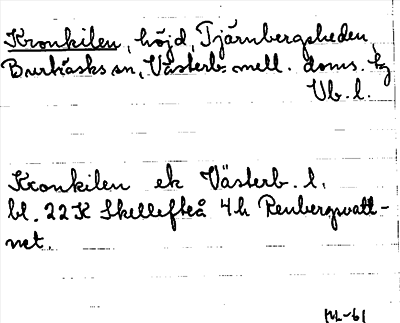 Kronkilen, höjd, Tjärnbergsheden,
Burträsks sn, Västerb. mell. doms. tg
Vb. l.
Kronkilen ek Västerb. l.
bl. 22K Skellefteå 4h Renbergsvatt-
net.
-61